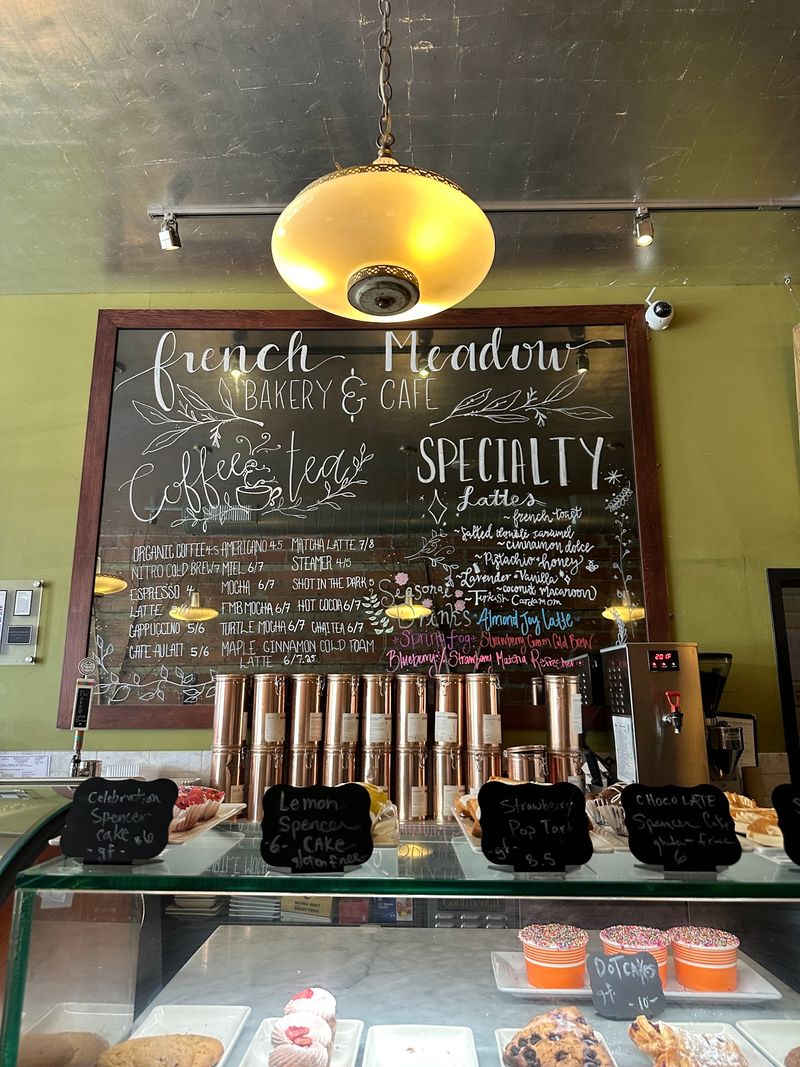 French Meadow
BAKERY & CAFE
Coffee tea
SPECIALTY
Lattes
~ french toast
~ Salted double caramel
~ cinnamon dolce
~ Pistachio + honey
~ Lavender Vanilla
~ coconut macaroon
~ Turkish Cardamom
ORGANIC COFFEE 4.5
NITRO COLD BREW 7
ESPRESSO 4
LATTE 5/6
CAPPUCCINO 5/6
CAFE AULAIT 5/6
AMERICANO 4.5
MIEL 6/7
MOCHA 6/7
FMB MOCHA 6/7
TURTLE MOCHA 6/7
MAPLE CINNAMON COLD FOAM
LATTE 6/7.25
MATCHA LATTE 7/8
STEAMER 4/5
SHOT IN THE DARK 5
HOT COCOA 6/7
CHAI TEA 6/7
Seasonal
Drinks
Almond Joy Latte
Spring Fog
Strawberry Cream Cold Brew
Blueberry/Strawberry Matcha Refresher
201F
Celebration
Spencer
Cake 6
-gf-
Lemon
Spencer
-6- CAKE
gluten free
Strawberry
Pop Tart
-gf-
8.5
CHOCOLATE
Spencer Cake
gluten-free
6
DOTCAKES
gf -10-